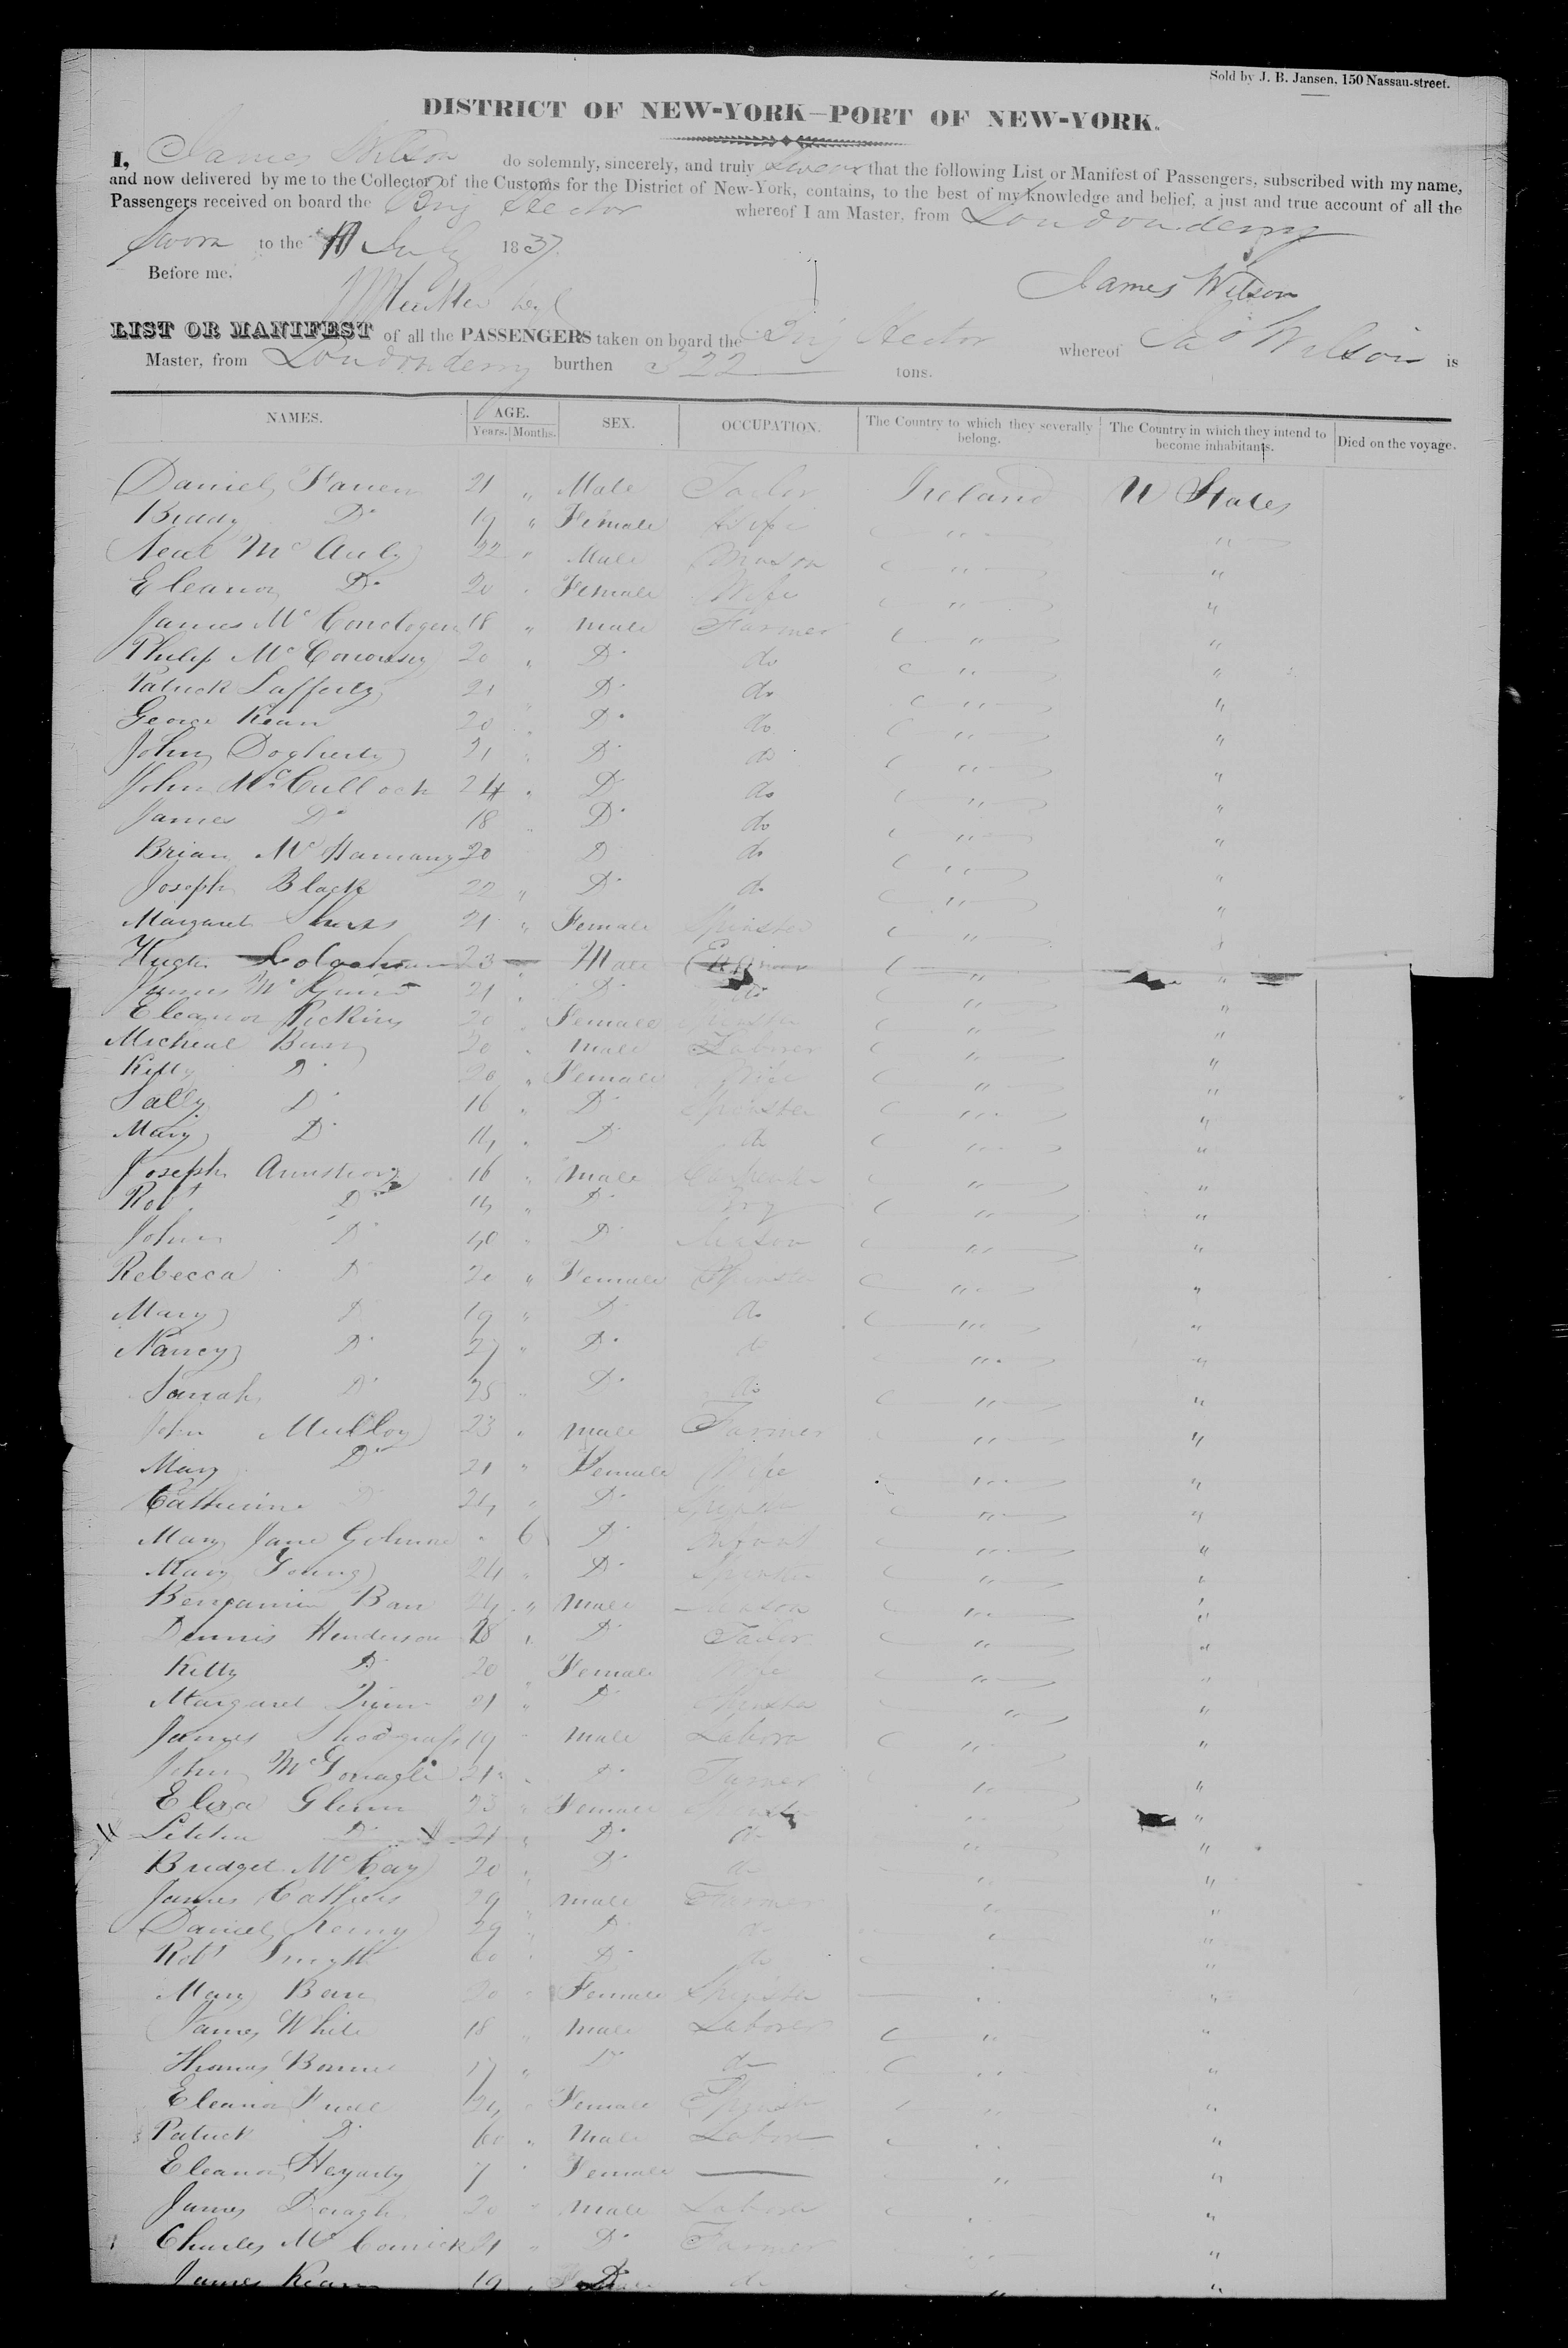 Sold by J. B. Jansen, 150 Nassau-street.
DISTRICT OF NEW-YORK—PORT OF NEW-YORK.
I, James Wilson do solemnly, sincerely, and truly swear that the following List or Manifest of Passengers, subscribed with my name,
and now delivered by me to the Collector of the Customs for the District of New-York, contains, to the best of my knowledge and belief, a just and true account of all the
Passengers received on board the Brig Hector whereof I am Master, from Londonderry
Sworn to the July 1837
Before me, James Wilson
LIST OR MANIFEST of all the PASSENGERS taken on board the Brig Hector whereof Jas Wilson is
Master, from Londonderry burthen 322 tons.
NAMES. AGE. Years. Months. SEX. OCCUPATION. The Country to which they severally belong. The Country in which they intend to become inhabitants. Died on the voyage.
Daniel 21 " Male Tailor Ireland U States
Biddy Do 19 " Female Wife " "
Neal Mc Auly 22 " Male Mason " "
Eleanor Do 20 " Female Wife " "
James Mc 18 " Male Farmer " "
Philip Mc 20 " Do do " "
Patrick Lafferty 21 " Do do " "
George Kean 20 " Do do " "
John Dogherty 21 " Do do " "
John McCulloch 24 " Do do " "
James Do 18 " Do do " "
Brian Mc 20 Do do " "
Joseph Black 22 " Do do " "
Margaret 21 " Female Spinster " "
Hugh 23 Male " "
James Mc 21 " Do do " "
Eleanor 20 " Female Spinster " "
Micheal 20 " Male Laborer " "
Kitty Do 20 " Female Wife " "
Sally Do 16 " Do Spinster " "
Mary Do 14 " Do do " "
Joseph Armstrong 16 " Male Carpenter " "
Robt Do 14 " Do Boy " "
John Do 40 " Do Mason " "
Rebecca Do 20 " Female Spinster " "
Mary Do 19 " Do do " "
Nancy Do 27 " Do do " "
Sarah Do 25 " Do do " "
John Mulloy 23 " Male Farmer " "
Mary Do 21 " Female Wife " "
Catherine Do 24 " Do Spinster " "
Mary Jane Gilmore " 6 Do Infant " "
Mary Young 24 " Do Spinster " "
Benjamin 24 " Male Mason " "
Dennis Henderson 18 " Do Tailor " "
Kitty Do 20 " Female Wife " "
Margaret 21 " Do Spinster " "
James Snodgrass 19 " Male Labore " "
John McGonagle 21 " Do Farmer " "
Eliza Glenn 23 " Female Spinster " "
Letitia Do 21 " Do do " "
Bridget Mc Cay 20 " Do do " "
James 29 " Male Farmer " "
Daniel 29 " Do do " "
Robt Smyth 60 " Do do " "
Mary 20 " Female Spinster " "
James White 18 " Male Laborer " "
Thomas 17 " Do do " "
Eleanor 24 " Female Spinster " "
Patrick Do 60 " Male Labore " "
Eleanor Hegarty 7 " Female — " "
James 20 " Male Laborer " "
Charles Mc 21 " Do Farmer " "
James Kean 19 " Do do " "